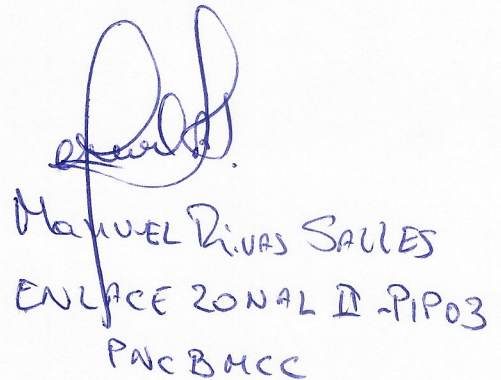 Manuel Rivas Salles
ENLACE ZONAL II - PIP03
PNCBMCC